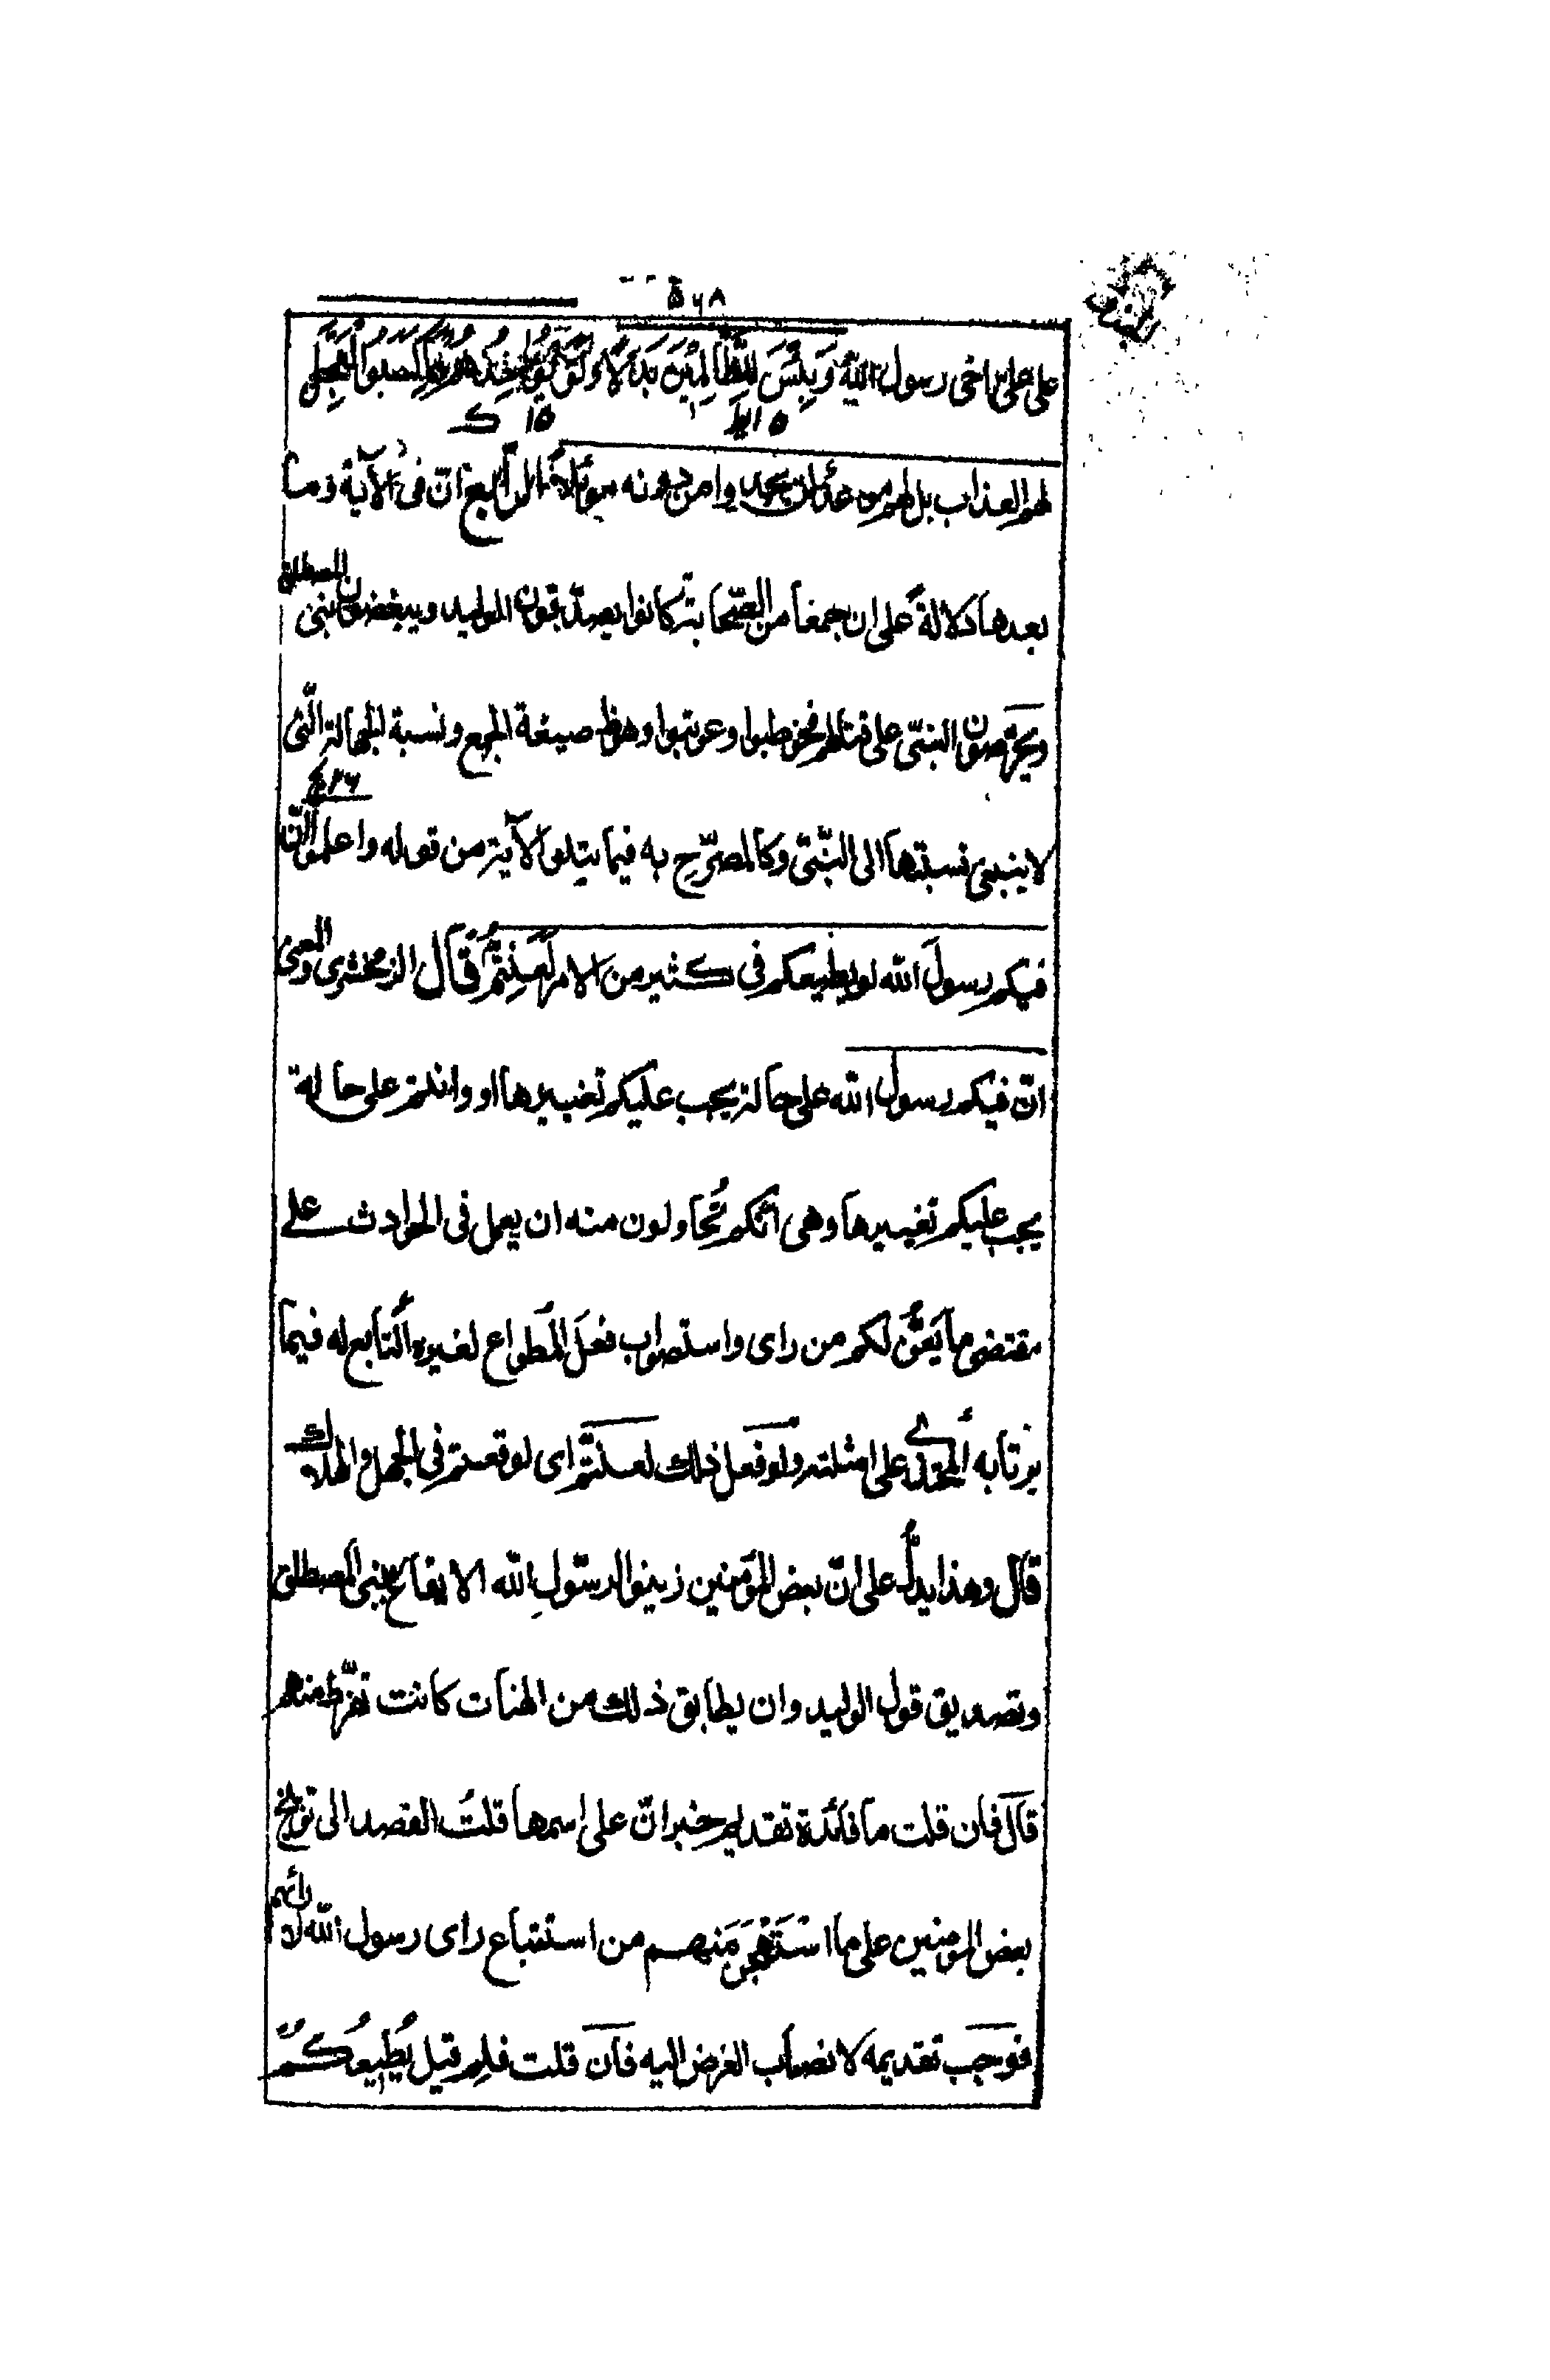 ٥٦٨
على على اخى رسول الله وَبِئْسَ لِلظَّالِمِيْنَ بَدَلًا وَلَوْ يُؤَاخِذُهُمْ بِمَا كَسَبُوا لَعَجَّلَ
لهم العذاب بل لهم موعد لن يجدوا من دونه موئلا الرّابع انّ فى الآية وما
بعدها دلالةً على ان جمعا من الصّحابة كانوا يصدّقون الوليد ويبغضون بنى المصطلق
ويحرّصون النبىّ على قتالهم فخوطبوا وعوتبوا وهو ظ صيغة الجمع ونسبة الجهالة الّتى
لا ينبغى نسبتها الى النّبىّ وكالمصرّح به فيما يتلو الآية من قوله واعلموا انّ
فيكم رسولَ الله لو يطيعكم فى كثير من الامر لَعَنِتُّمْ قَالَ الزمخشرى والمعنى
انّ فيكم رسول الله على حالة يجب عليكم تغييرها او وانتم على حالة
يجب عليكم تغييرها وهى انّكم تُحاولون منه ان يعمل فى الحوادث على
مقتضى ما يَعِنُّ لكم من راى واستصواب فعلَ المطواع لغيره التابع له فيما
يرتأيه المحتذى على امثلته ولو فعل ذلك لعنتّم اى لوقعتم فى الجهل والهلاك
قال وهذا يدلُّ على انّ بعض المؤمنين زينوا لرسّولِ الله الايقاع ببنى المصطلق
وتصديق قول الوليد وان يطابق ذلك من الهنات كانت تفرّط منهم
قال فان قلت ما فائدة تقديم خبر انّ على إسمها قلتُ القصد الى توبيخ
بعض المؤمنين على ما اسْتَهْجَنَ منهم من استتباع راى رسول الله لارائهم
فوجب تقديمه لانصباب الغرض اليه فان قلت فلِم قيل يُطِيعُكُمْ